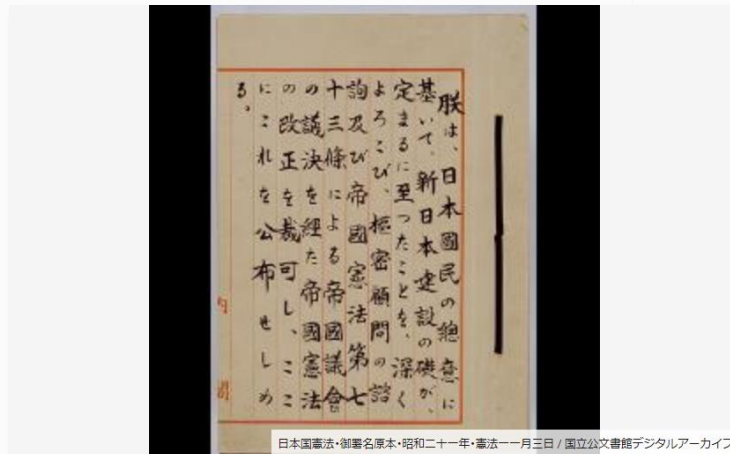 朕は、日本國民の總意に
基いて、新日本建設の礎が、
定まるに至つたことを、深く
よろこび、樞密顧問の諮
詢及び帝國憲法第七
十三條による帝國議會
の議決を經た帝國憲法
の改正を裁可し、ここ
にこれを公布せしめ
る。
内閣
日本国憲法・御署名原本・昭和二十一年・憲法一一月三日 / 国立公文書館デジタルアーカイブ